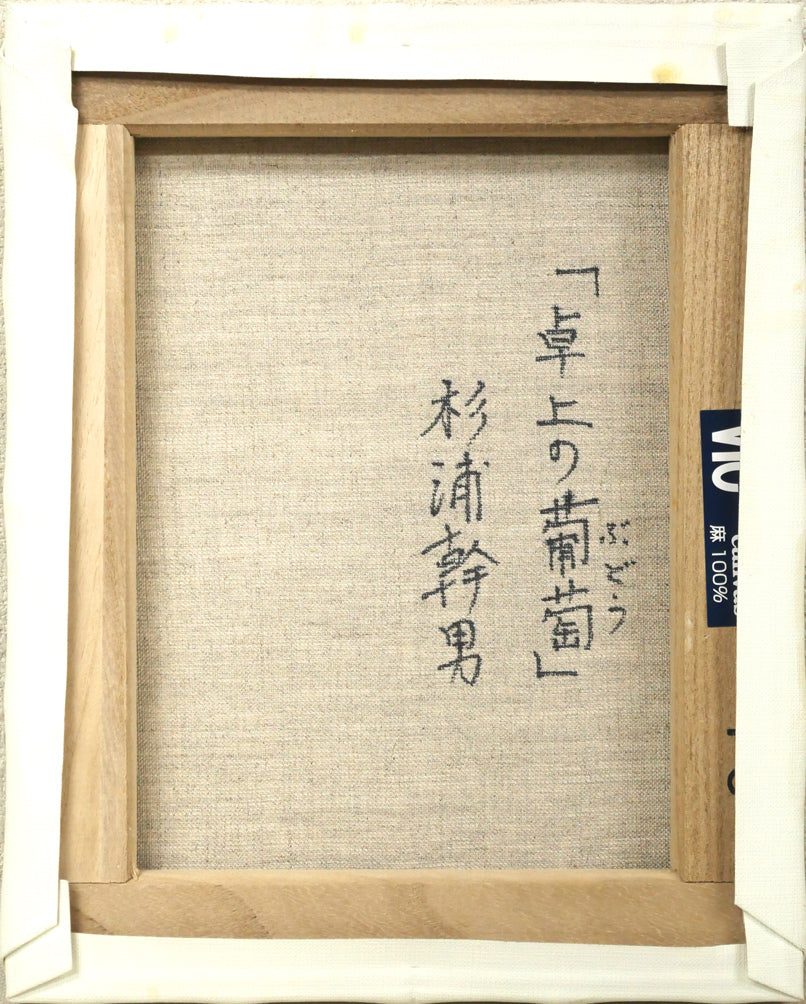 「卓上の葡萄」
ぶどう
杉浦幹男
麻 100%